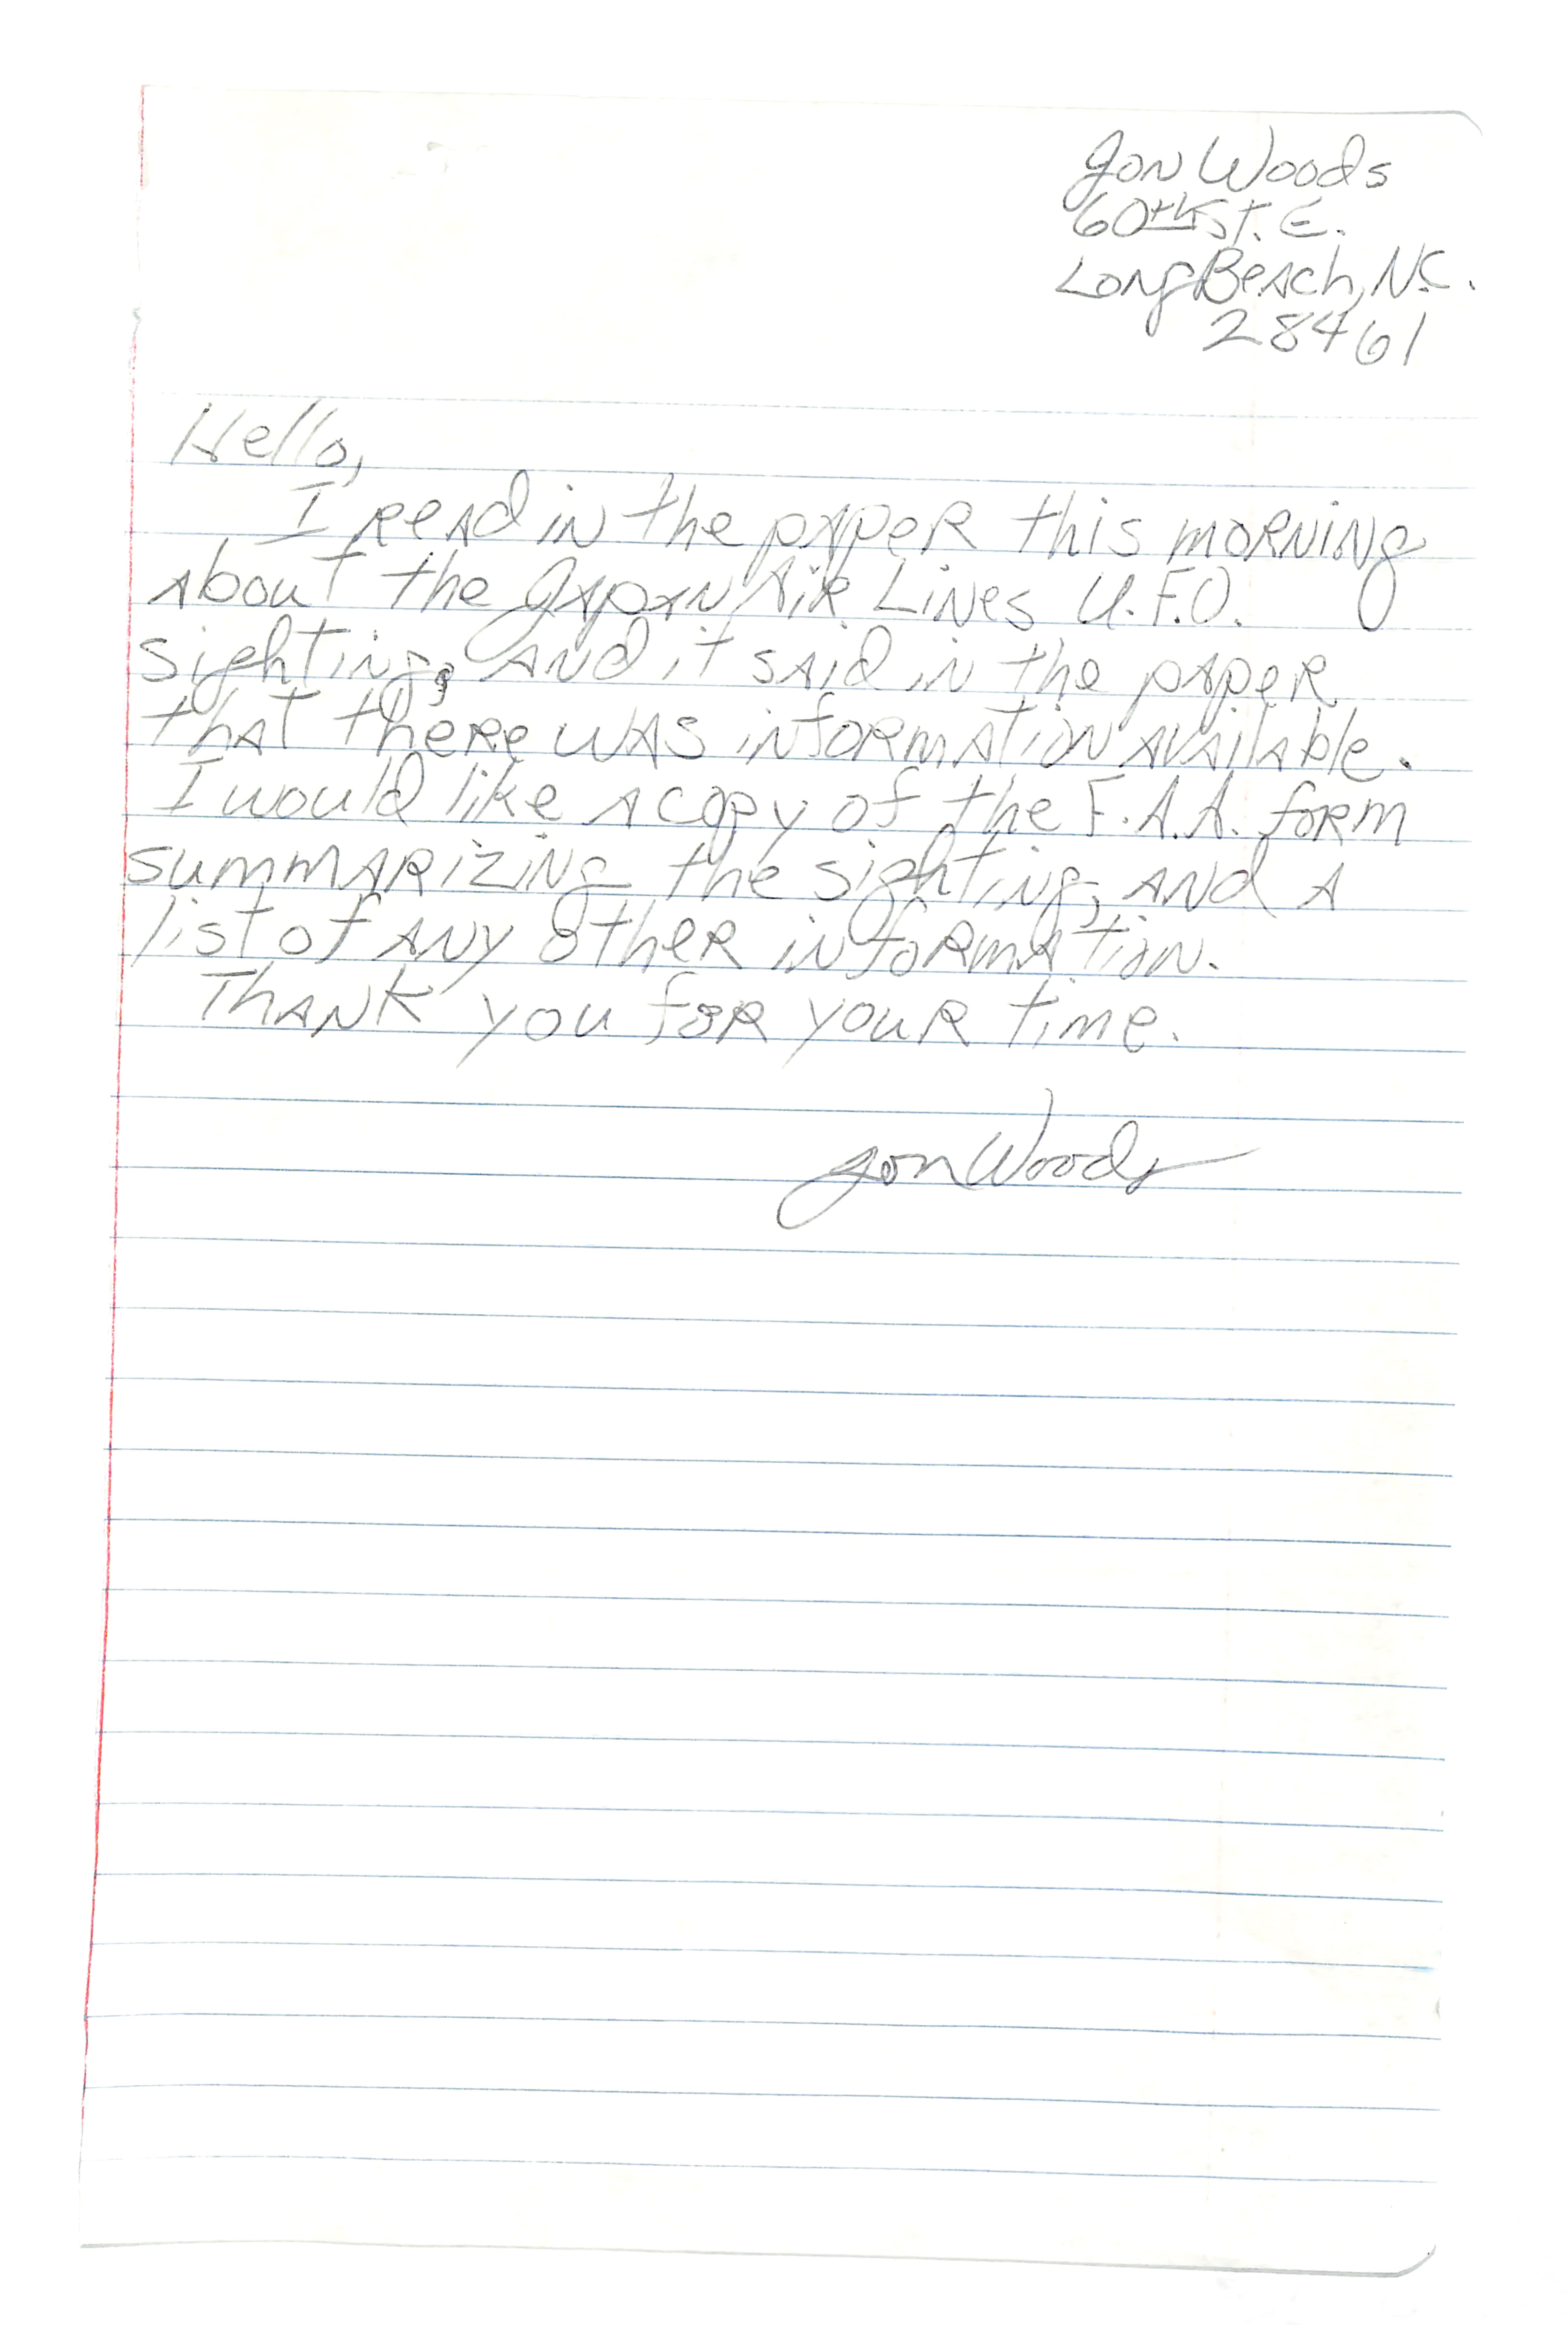 Jon Woods
60th St. E.
Long Beach, N.C.
28461
Hello,
I read in the paper this morning
about the Japan Air Lines U.F.O.
sighting, and it said in the paper
that there was information available.
I would like a copy of the F.A.A. form
summarizing the sighting, and a
list of any other information.
Thank you for your time.
Jon Woods